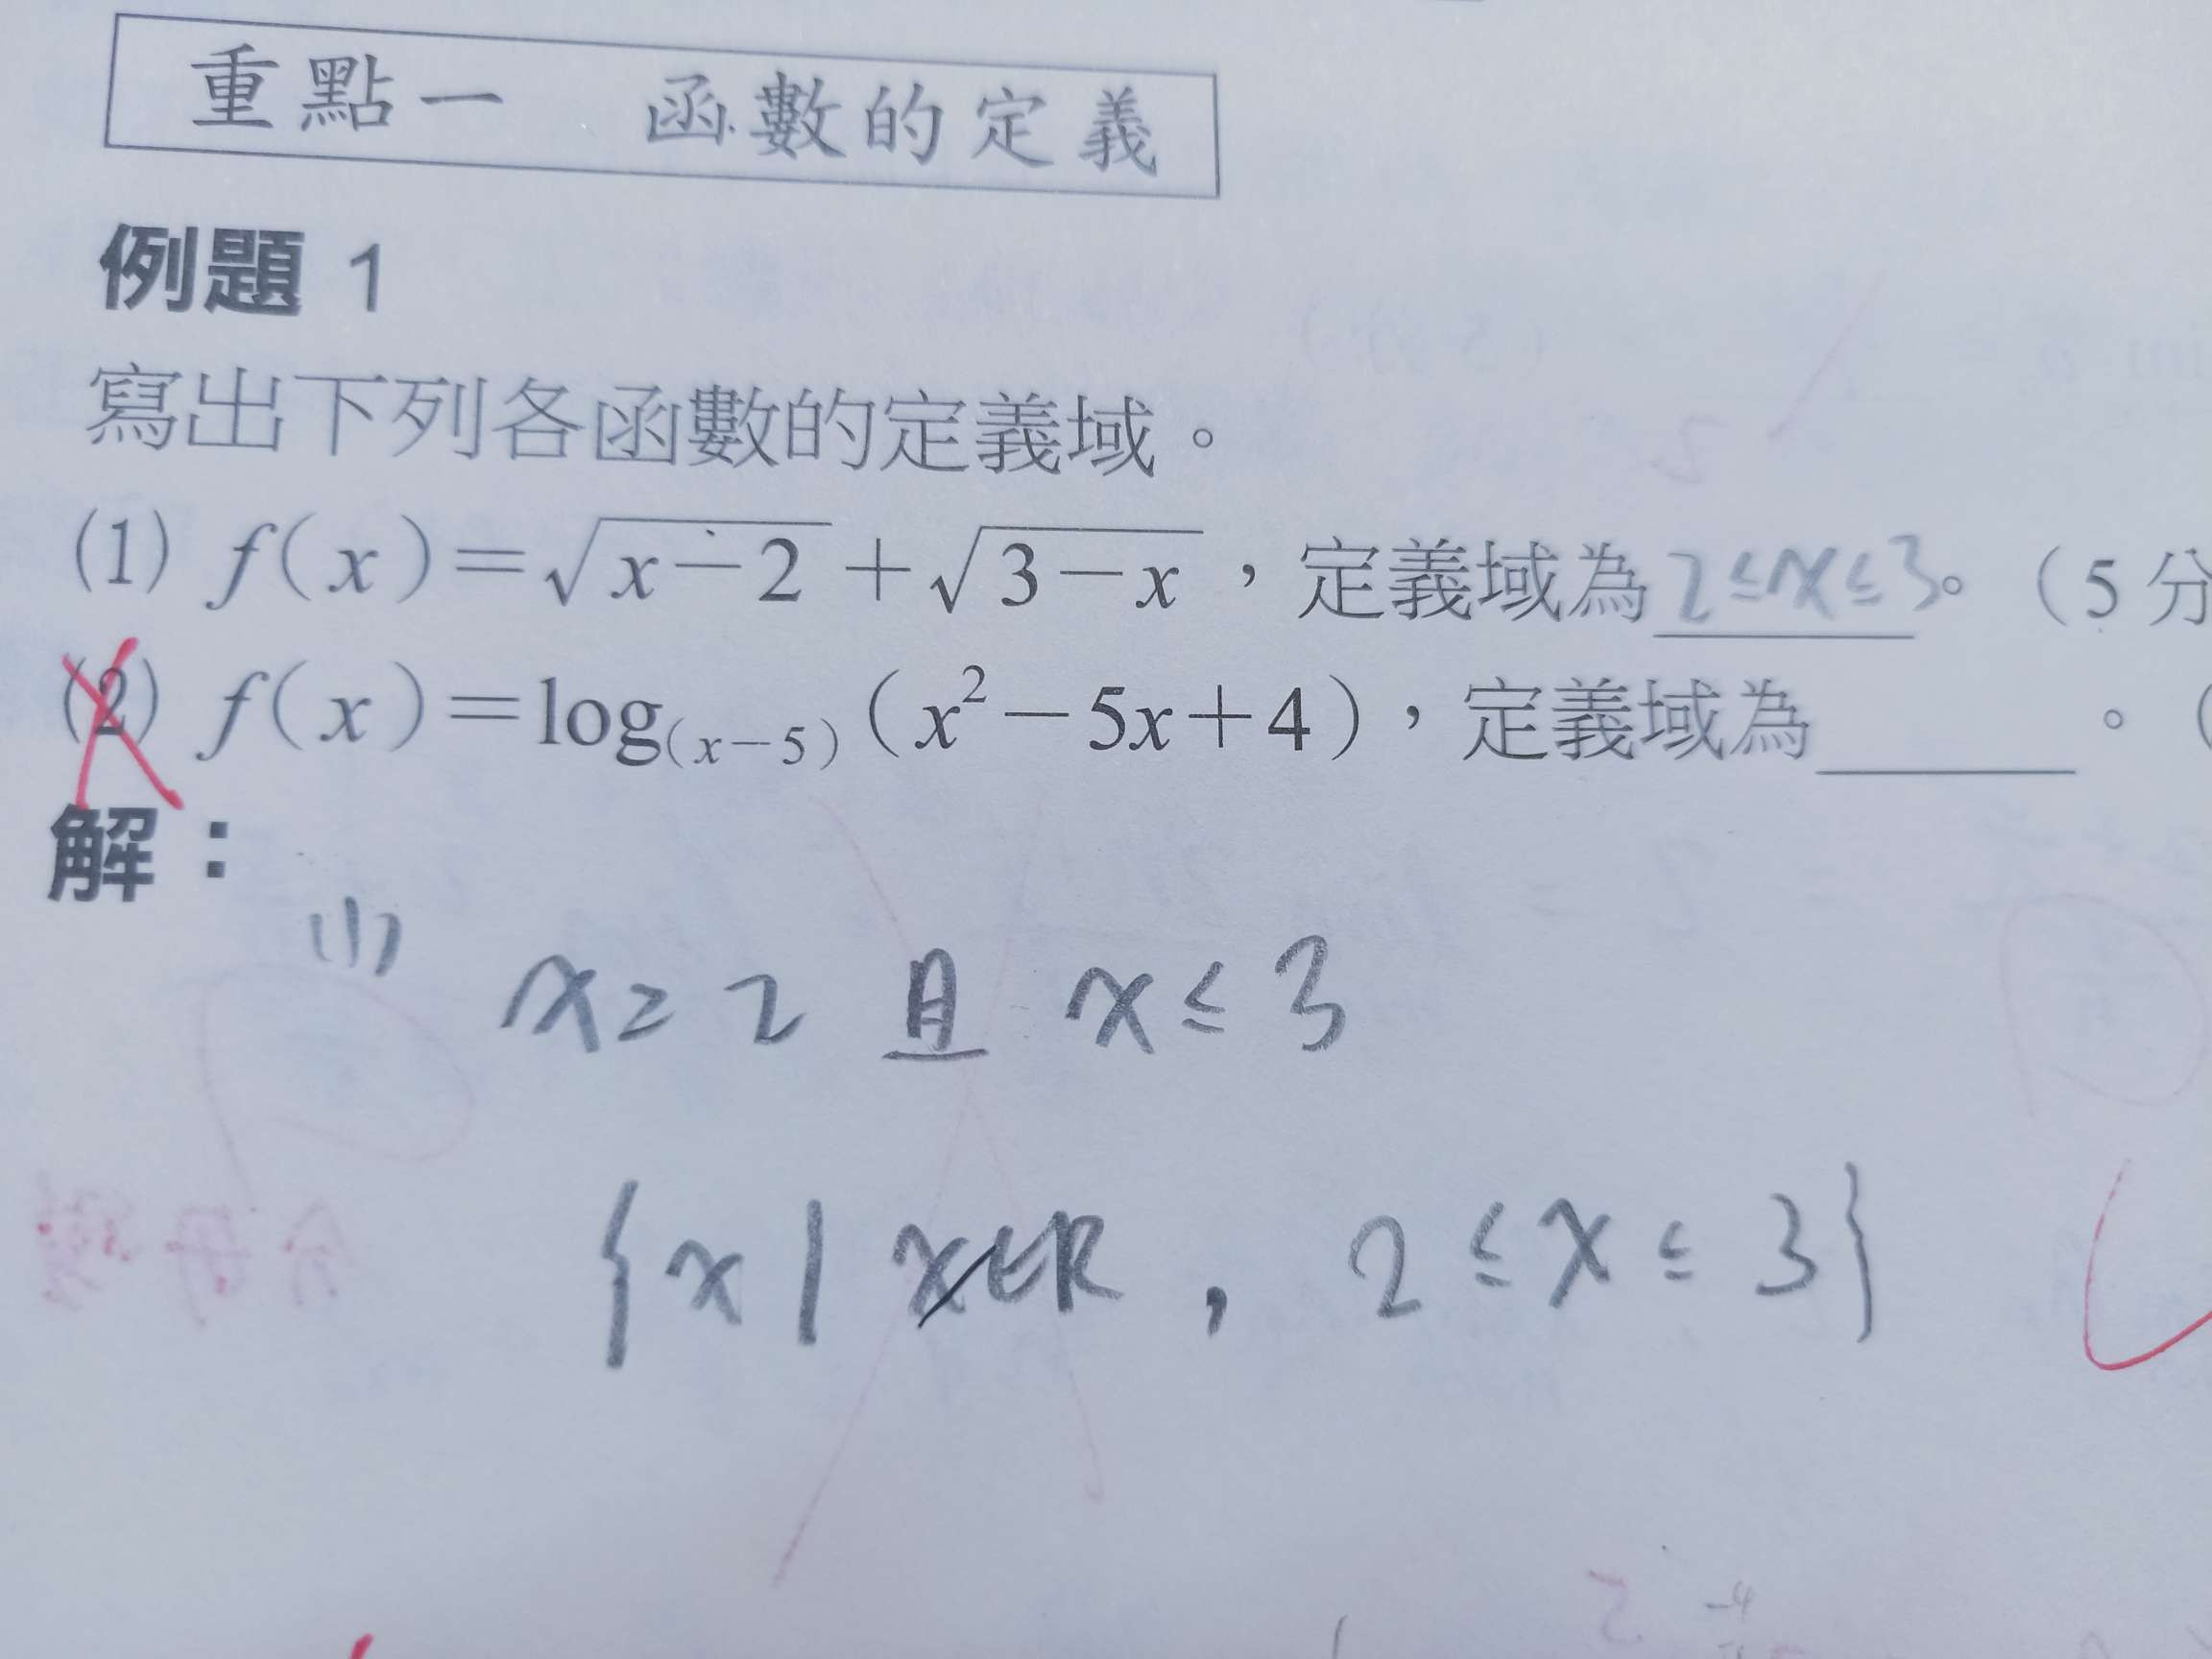 重點一 函數的定義
例題 1
寫出下列各函數的定義域。
(1) f(x)=√(x-2)+√(3-x)，定義域為 2≤x≤3。（5分
(2) f(x)=log₍ₓ₋₅₎(x²-5x+4)，定義域為______。（
解：
(1) x≥2 且 x≤3
{x|x∈R, 2≤x≤3}